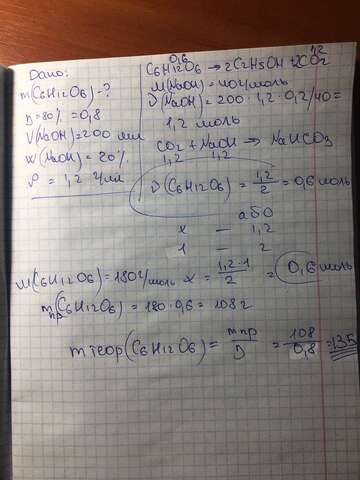 Дано:
m(C6H12O6)-?
D=80% =0,8
V(NaOH)=200 мл
w(NaOH)=20%
ρ = 1,2 г/мл
0,6 1,2
C6H12O6 → 2C2H5OH + 2CO2
M(NaOH)=40г/моль
ν(NaOH)=200·1,2·0,2/40=
1,2 моль
CO2 + NaOH → NaHCO3
1,2 1,2
ν(C6H12O6) = 1,2/2 = 0,6 моль
або
x — 1,2
1 — 2
M(C6H12O6)=180г/моль x = 1,2·1/2 = 0,6 моль
mпр(C6H12O6) = 180·0,6 = 108 г
m теор(C6H12O6) = mпр/D = 108/0,8 = 135